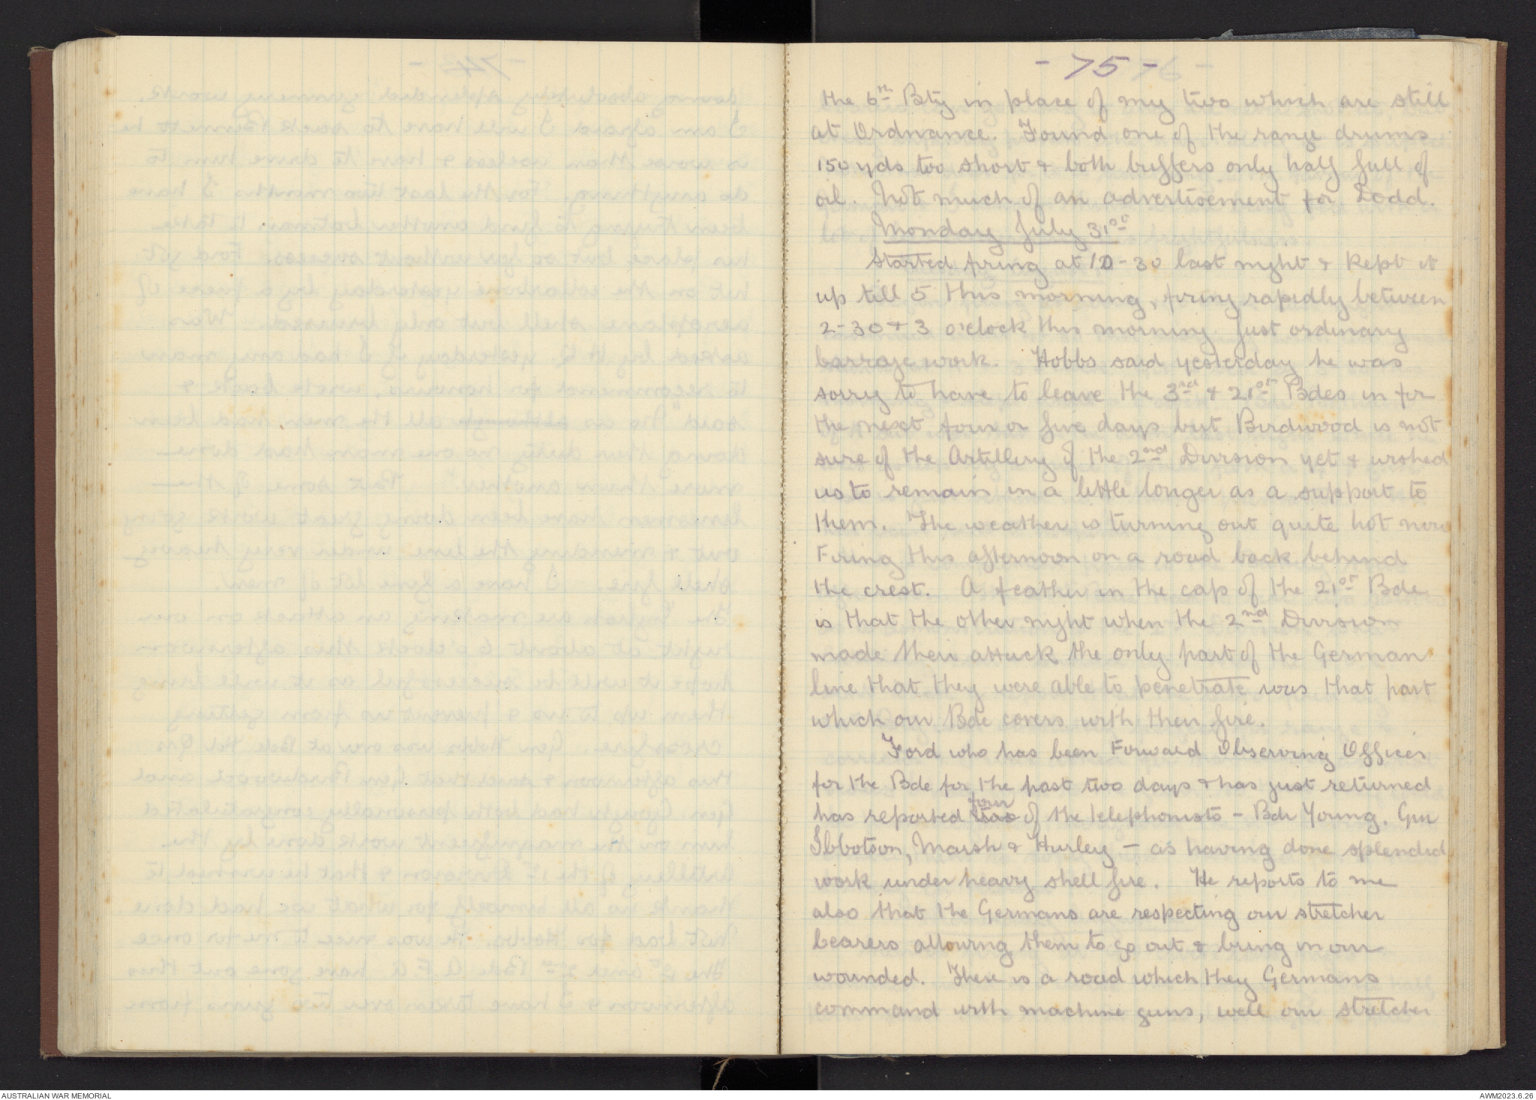 - 75 -
the 6th Bty in place of my two which are still
at Ordnance. Found one of the range drums
150 yds too short & both buffers only half full of
oil. Not much of an advertisement for Dodd.
Monday July 31st
Started firing at 10-30 last night & kept it
up till 5 this morning, firing rapidly between
2-30 & 3 o'clock this morning just ordinary
barrage work. Hobbs said yesterday he was
sorry to have to leave the 3rd & 21st Bdes in for
the next four or five days but Birdwood is not
sure of the Artillery of the 2nd Division yet & wished
us to remain in a little longer as a support to
them. The weather is turning out quite hot now
Firing this afternoon on a road back behind
the crest. A feather in the cap of the 21st Bde
is that the other night when the 2nd Division
made their attack the only part of the German
line that they were able to penetrate was that part
which our Bde covers with their fire.
Ford who has been Forward Observing Officer
for the Bde for the past two days & has just returned
has reported four of the telephonists - Bdr Young, Gnr
Ibbotson, Marsh & Hurley - as having done splendid
work under heavy shell fire. He reports to me
also that the Germans are respecting our stretcher
bearers allowing them to go out & bring in our
wounded. There is a road which they Germans
command with machine guns, well our stretcher
AUSTRALIAN WAR MEMORIAL
AWM2023.6.26